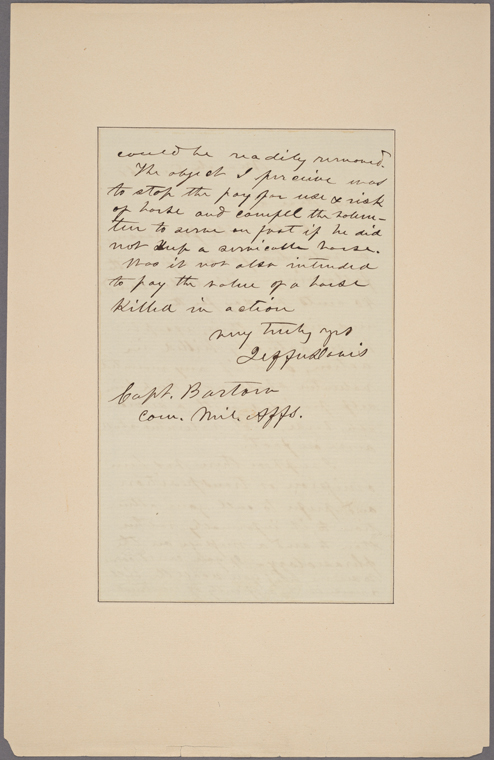 could be readily removed.
The object I perceive was
to stop the pay for use & risk
of horse and compel the volun-
teer to serve on foot if he did
not keep a servicable horse.
Was it not also intended
to pay the value of a horse
killed in action
very truly yrs
Jeffn Davis
Capt. Bartow
Com. Mil. Affs.